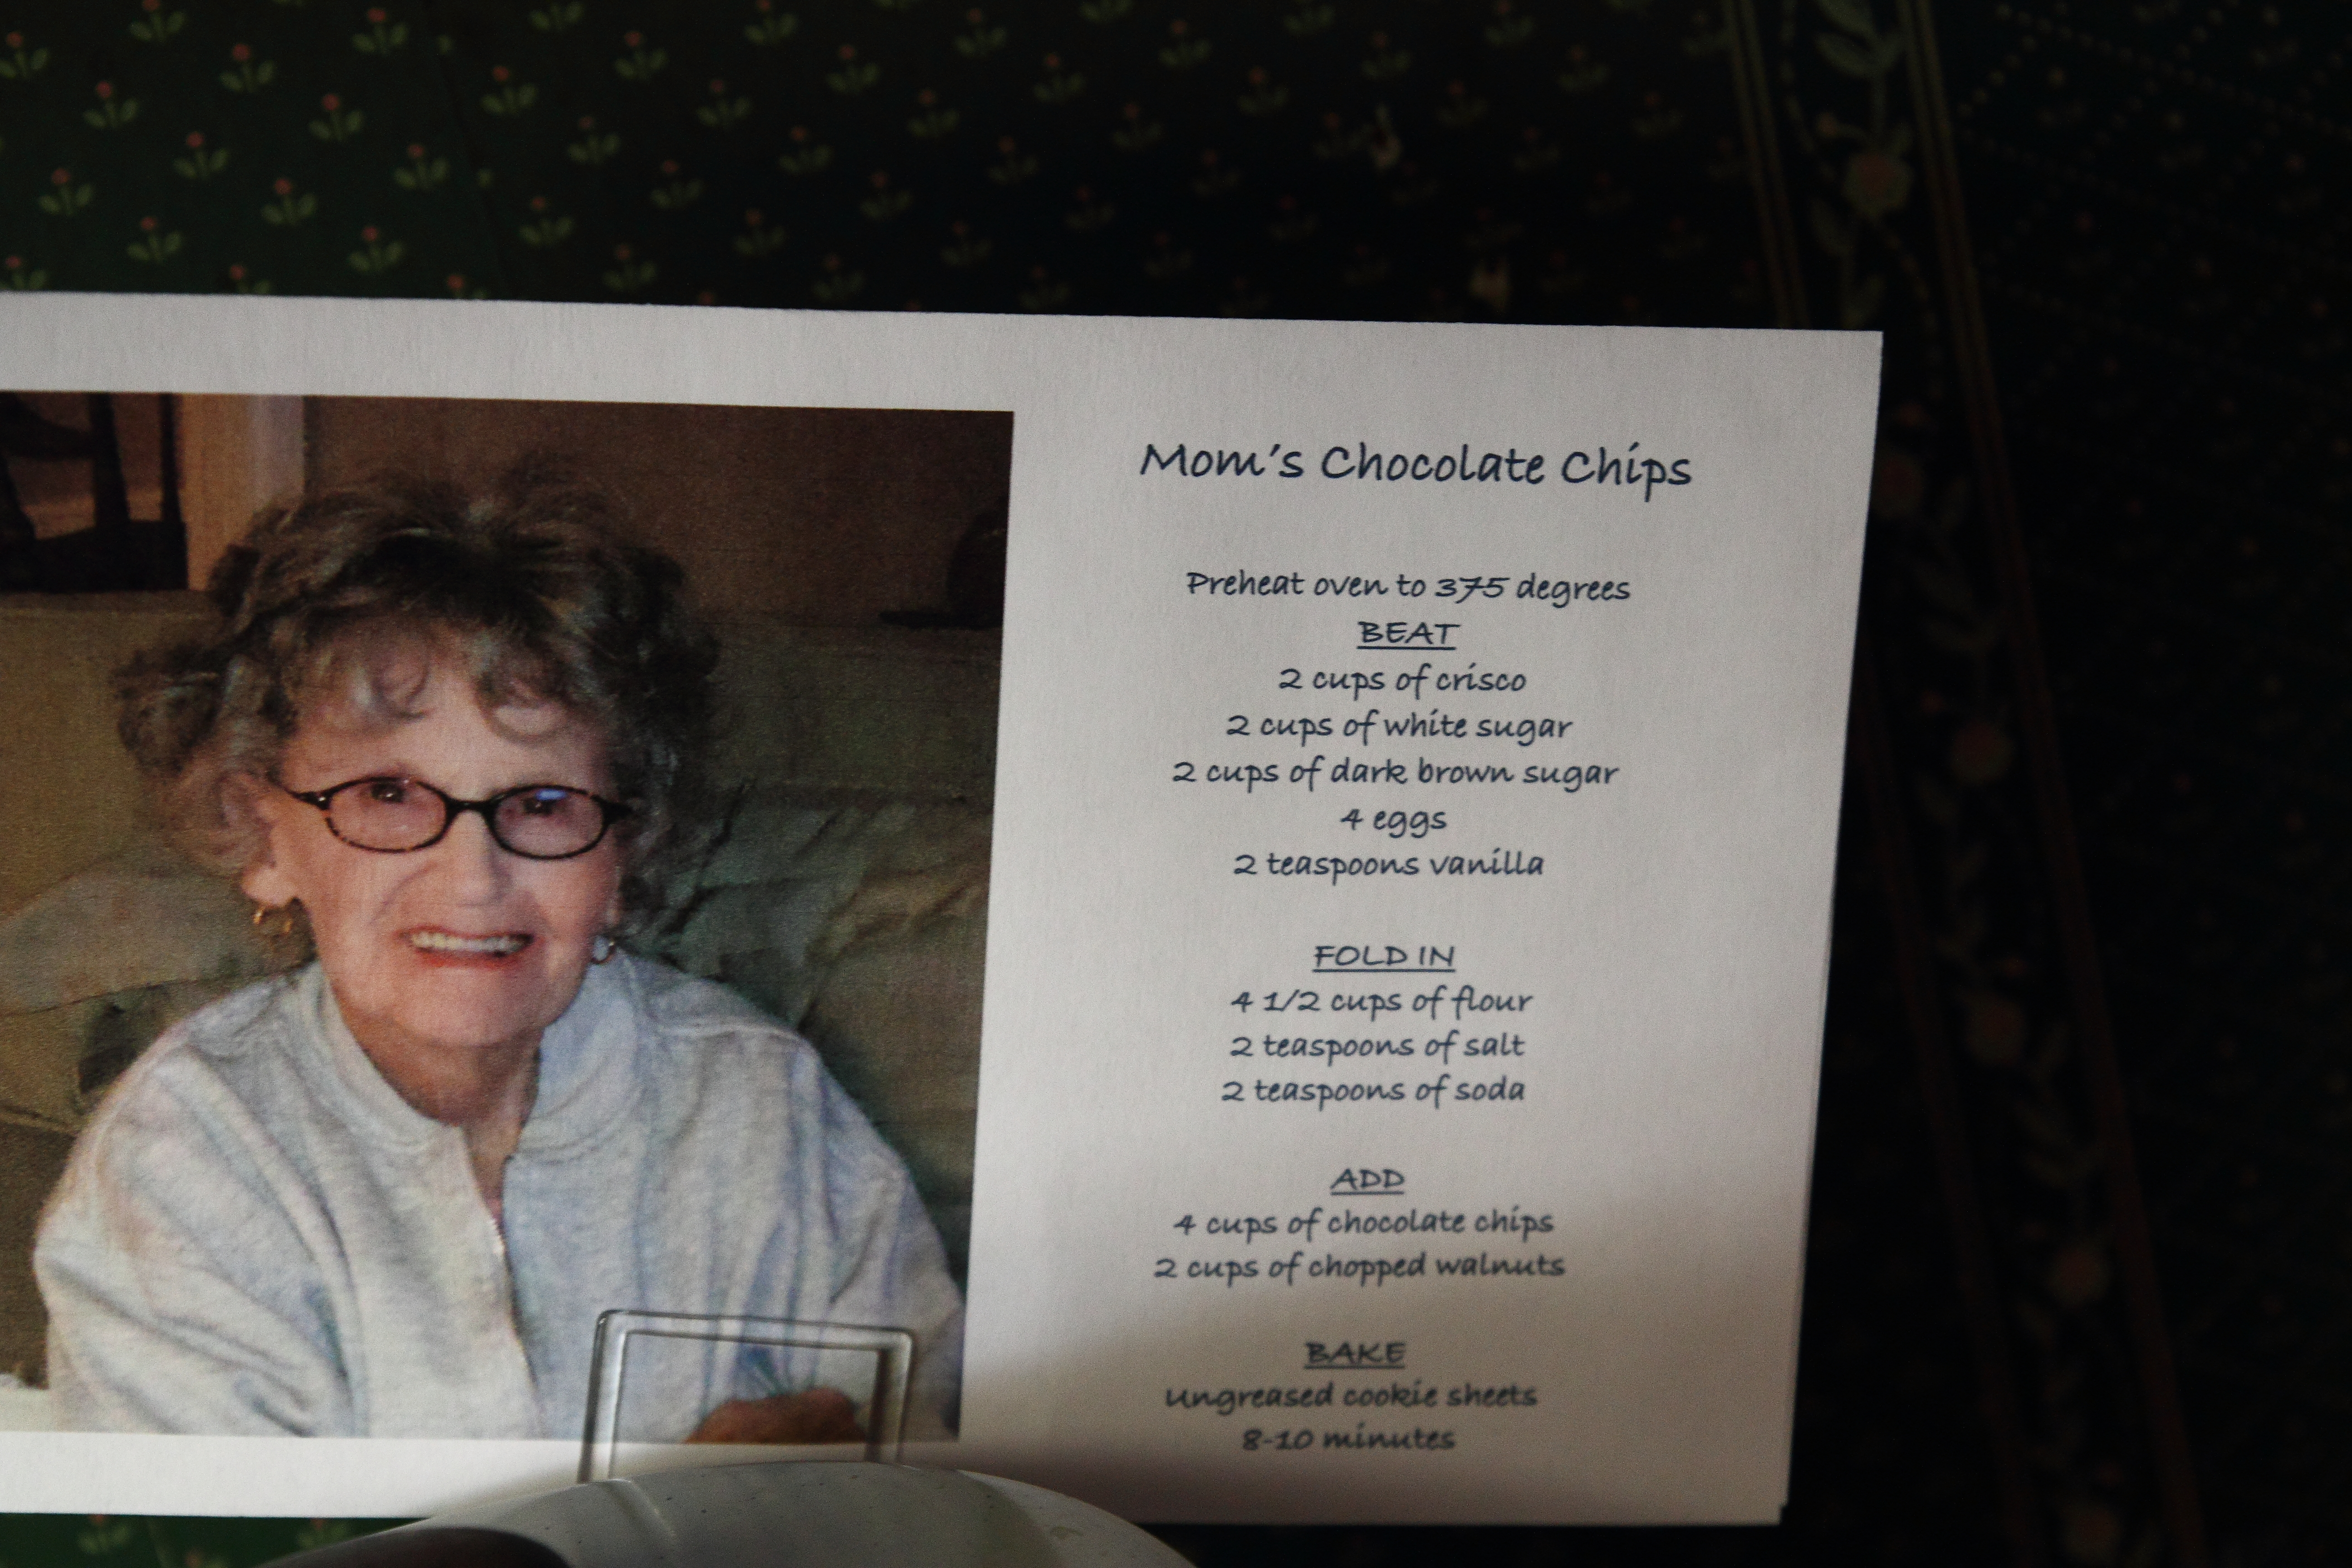 Mom's Chocolate Chips
Preheat oven to 375 degrees
BEAT
2 cups of crisco
2 cups of white sugar
2 cups of dark brown sugar
4 eggs
2 teaspoons vanilla
FOLD IN
4 1/2 cups of flour
2 teaspoons of salt
2 teaspoons of soda
ADD
4 cups of chocolate chips
2 cups of chopped walnuts
BAKE
ungreased cookie sheets
8-10 minutes